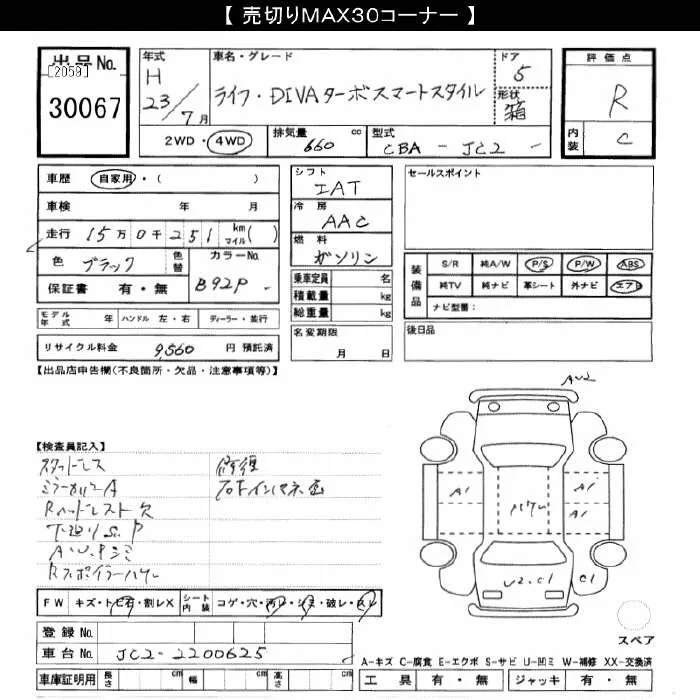 【 売切りMAX30コーナー 】
出品No.
[2059]
30067
年式
H
23/7月
車名・グレード
ライフ・DIVAターボスマートスタイル
ドア
5
形状
箱
評価点
R
内装
C
2WD・4WD
排気量
660 cc
型式
CBA - JC2 -
車歴 自家用・( )
車検 年 月
走行 15万0千251 km マイル( )
色 ブラック
色替
カラーNo.
B92P -
保証書 有・無
シフト
IAT
冷房
AAC
燃料
ガソリン
乗車定員 名
積載量 kg
総重量 kg
セールスポイント
装備品
S/R 純A/W P/S P/W ABS
純TV 純ナビ 革シート 外ナビ エアB
ナビ型番:
モデル年式 年 ハンドル 左・右 ディーラー・並行
リサイクル料金 9,560 円 預託済
名変期限
月 日
後日品
【出品店申告欄(不良箇所・欠品・注意事項等)】
AU2
【検査員記入】
スタッドレス
ミラーカバーA
Rヘッドレスト欠
下廻りS.P
A・U・Pシミ
Rスポイラーハゲ
修復
A1
A1
A1
ハゲ
U2.C1
C1
FW キズ・トビ石・割レX
シート内装 コゲ・穴・汚レ・シミ・破レ・スレ
登録No.
車台No. JC2-2200625
車庫証明用 長さ cm 幅 cm 高さ cm
スペア
A-キズ C-腐食 E-エクボ S-サビ U-凹ミ W-補修 XX-交換済
工具 有・無 ジャッキ 有・無